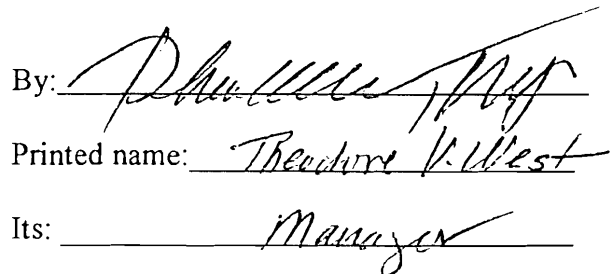 By:
Printed name: Theodore V. West
Its: Manager